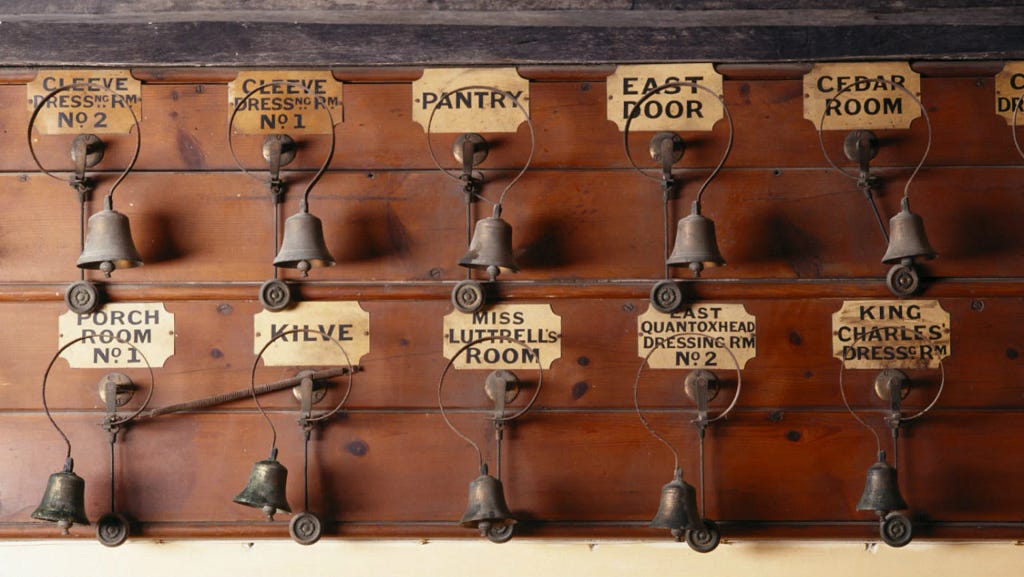 CLEEVE
DRESSNG RM
No 2
CLEEVE
DRESSNG RM
No 1
PANTRY
EAST
DOOR
CEDAR
ROOM
PORCH
ROOM
No 1
KILVE
MISS
LUTTRELL'S
ROOM
EAST
QUANTOXHEAD
DRESSING RM
No 2
KING
CHARLES'
DRESSG RM